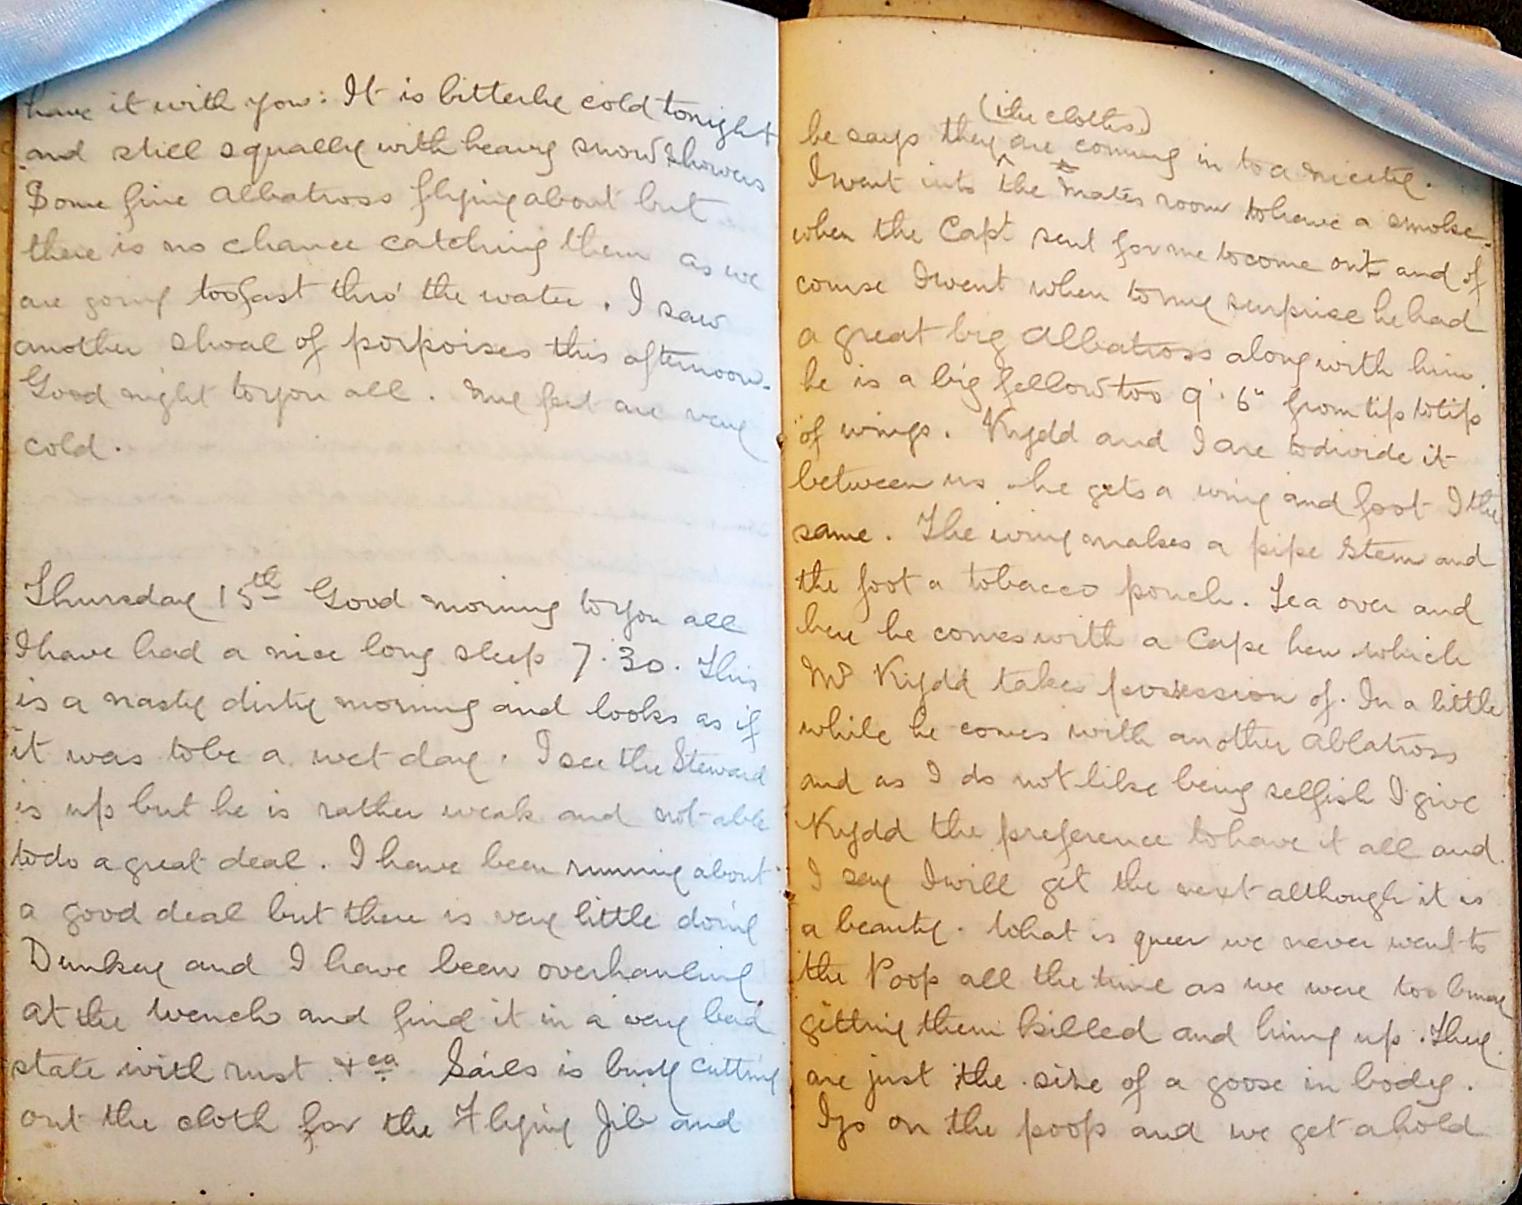 have it with you: It is bitterly cold tonight
and still squally with heavy snow showers
Some fine Albatross flying about but
there is no chance catching them as we
are going too fast thro' the water. I saw
another shoal of porpoises this afternoon.
Good night to you all. My feet are very
cold.
Thursday 15th Good morning to you all
I have had a nice long sleep 7.30. This
is a nasty dirty morning and looks as if
it was to be a wet day. I see the Steward
is up but he is rather weak and not able
to do a great deal. I have been running about
a good deal but there is very little doing
Dunkey and I have been overhauling
at the wench and find it in a very bad
state with rust &ca. Sails is busy cutting
out the cloth for the Flying Jib and
(the cloths)
he says they are coming in to a nicety.
I went into the Mates room to have a smoke
when the Capt sent for me to come out and of
course I went when to my surprise he had
a great big Albatross along with him.
he is a big fellow too 9'.6" from tip to tip
of wings. Kydd and I are to divide it
between us he gets a wing and foot I the
same. The wing makes a pipe stem and
the foot a tobacco pouch. Tea over and
here he comes with a Cape hen which
Mr Kydd takes possession of. In a little
while he comes with another Ablatross
and as I do not like being selfish I give
Kydd the preference to have it all and
I say I will get the next although it is
a beauty. What is queer we never went to
the Poop all the time as we were too busy
getting them killed and hung up. They
are just the size of a goose in body.
I go on the poop and we get a hold